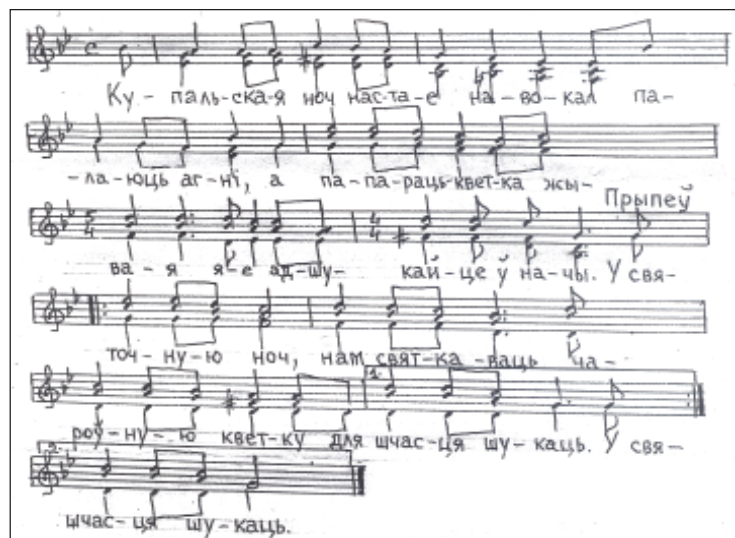 Ку-паль-ска-я ноч нас-та-е на-во-кал па-
-ла-юць аг-ні, а па-па-раць-квет-ка жы-
Прыпеў
ва-я я-е ад-шу-кай-це ў на-чы. У свя-
точ-ну-ю ноч, нам свят-ка-ваць ча-
роў-ну-ю квет-ку для шчас-ця шу-каць. У свя-
шчас-ця шу-каць.